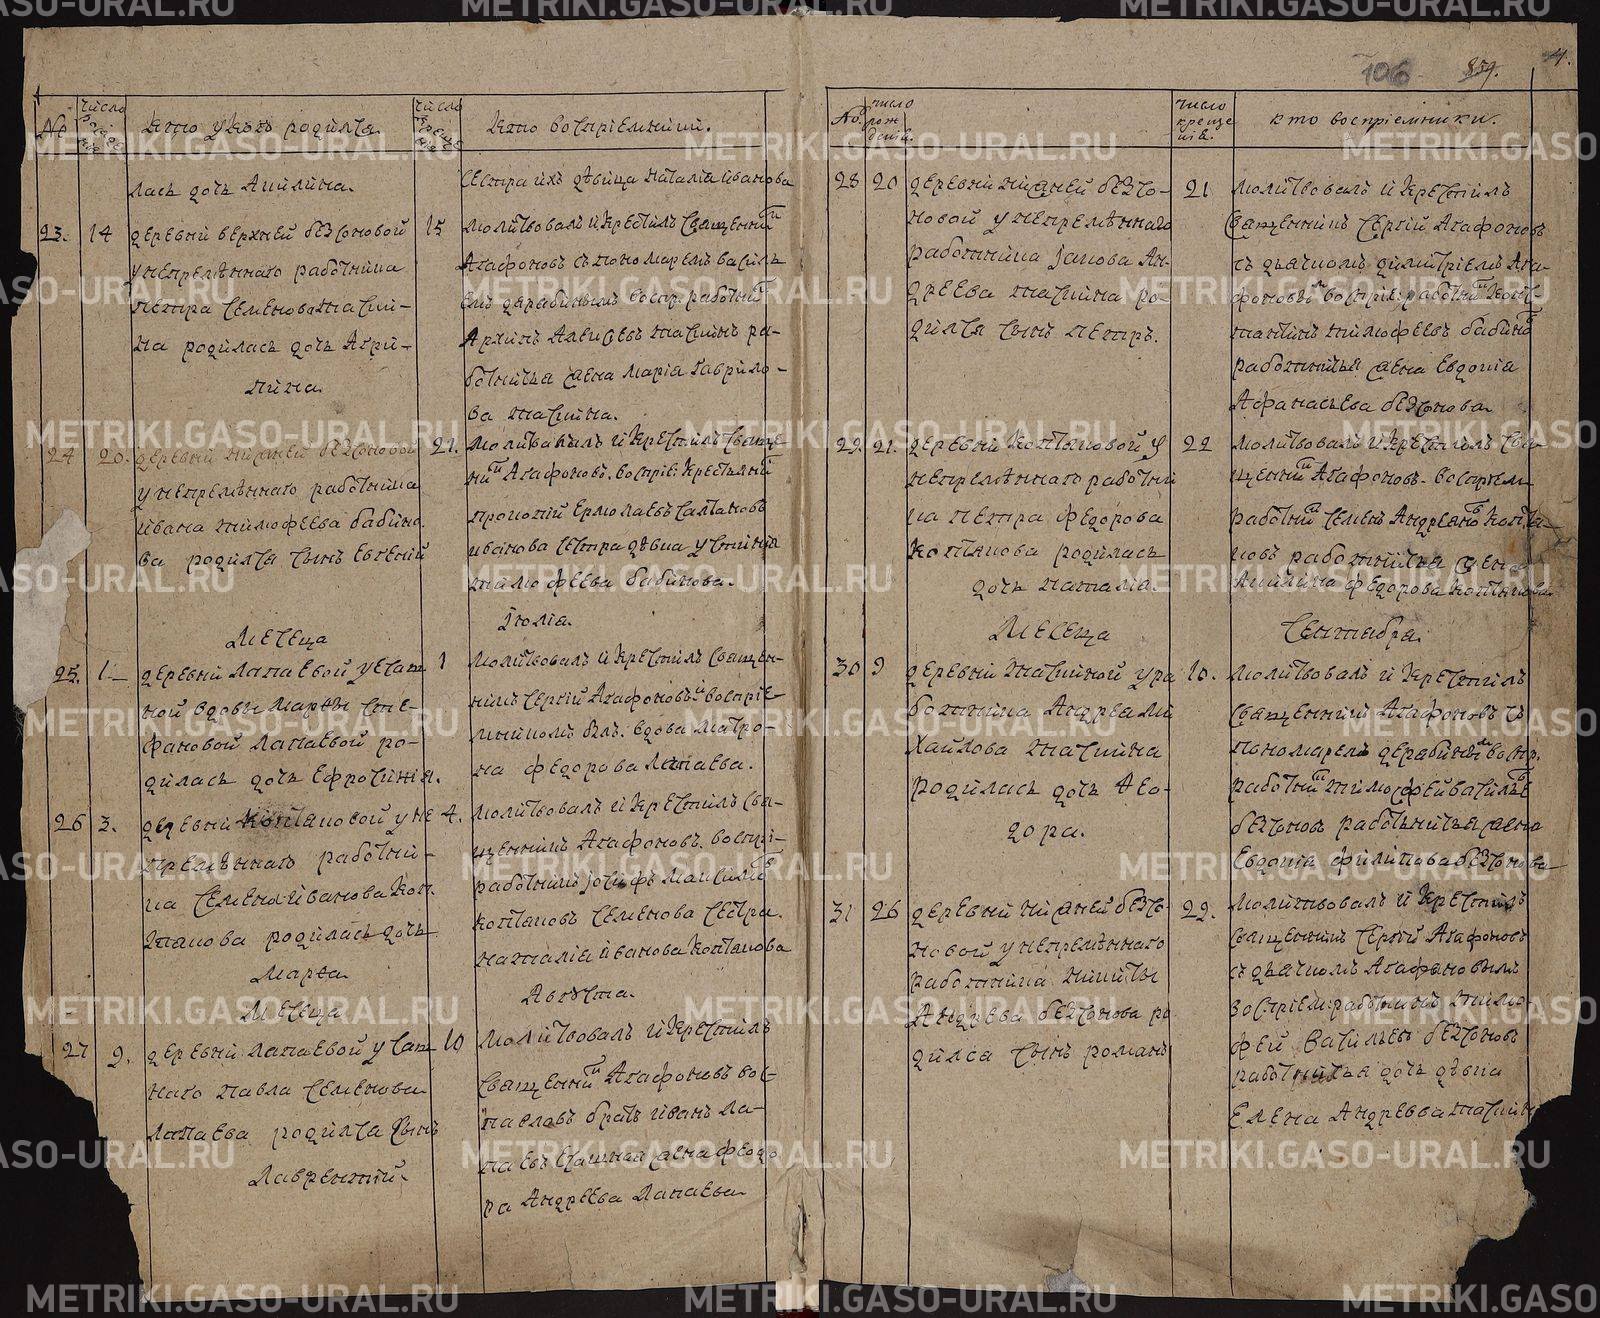 106
859.
4.
№
число рожденія
кто у кого родился.
число крещенія
кто воспріемники.
лась дочь Акилина.
сестра ихъ дѣвица Наталіа Иванова
23. 14
деревни верхней безсоновой
у непремѣннаго работника
Петра Семенова Таскина
на родилась дочь Агри-
пина.
15
молитвовалъ и крестилъ священник
Агафоновъ съ пономаремъ василь
емъ дерабинымъ воспр. работник
Архипъ Алексѣев Таскинъ ра-
ботничья жена Маріа Гаврило-
ва Таскина.
24 20.
деревни нижней безсоновой
у непремѣннаго работника
ивана тимофеева бабино
ва родился сынъ Евгеній
21.
молитвавалъ и крестилъ свяще
ник Агафоновъ. воспріе: крестьянин
прокопій Ермолаевъ Салтановъ
иванова сестра дѣвка устинья
тимофеева бабинова.
Месеца
Іюліа.
25. 1
деревни Лапаевой у сташ
ной вдовы Марѳы Сте-
фановой Лапаевой ро-
дилась дочь Ефросинія.
1
молитвовалъ и крестилъ священ-
никъ Сергій Агафоновъ воспріе-
мникомъ былъ: вдова Матро-
на федорова Лапаева.
26 3.
деревни Коптяковой у не
премѣннаго работни-
ка Семена иванова Коп
тякова родилась дочь
Марѳа
4.
молитвовалъ и крестилъ свя-
щенникъ Агафоновъ. воспрі-
работникъ іосифъ Максимов
коптяковъ Семенова сестра
наталіа иванова коптякова
Месеца
Августа.
27 9.
деревни Лапаевой у сташ
наго павла Семенова
Лапаева родился сынъ
Лаврентій.
10
молитвовалъ и крестилъ
священник Агафоновъ вос-
павловъ братъ иванъ Ла-
паевъ сташная жена феодо
ра Андреева Лапаева
№.
число рожденія.
число крещенія.
кто воспріемники.
28 20
деревни нижней безсо-
новой у непремѣннаго
работника іакова Ан-
дреева таскина ро-
дился сынъ петръ.
21
молитвовалъ и крестилъ
священникъ Сергій Агафоновъ
съ дьячкомъ димитріемъ Ага-
фоновым воспріе: работник конс
тантинъ тимофеевъ бабинов
работничья жена Евдокіа
Афанасьева безсонова.
29. 21.
деревни коптяковой у
непремѣннаго работни
ка петра федорова
коптякова родилась
дочь наталіа.
22
молитвовалъ и крестилъ свя
щенник Агафоновъ. воспріем
работник Семенъ Андреянов коптя-
ковъ работничья жена
Акилина федорова коптякова.
Месеца
Сентября.
30 9
деревни таскиной у ра
ботника Андреа ми
хайлова таскина
родилась дочь Ѳео-
дора.
10.
молитвовалъ и крестилъ
священникъ Агафоновъ съ
пономаремъ дерабиным воспр.
работник тимофей васильев
безсоновъ работничья жена
Евдокіа филипова безсонова
31 26
деревни нижней безсо-
новой у непремѣннаго
работника никиты
Андреева безсонова ро
дился сынъ романъ
29.
молитвовалъ и крестилъ
священникъ Сергій Агафоновъ
съ дьячкомъ Агафоновымъ
воспріем: работникъ тимо-
фей васильевъ безсоновъ
работничья дочь дѣвка
Елена Андреева таскина
METRIKI.GASO-URAL.RU